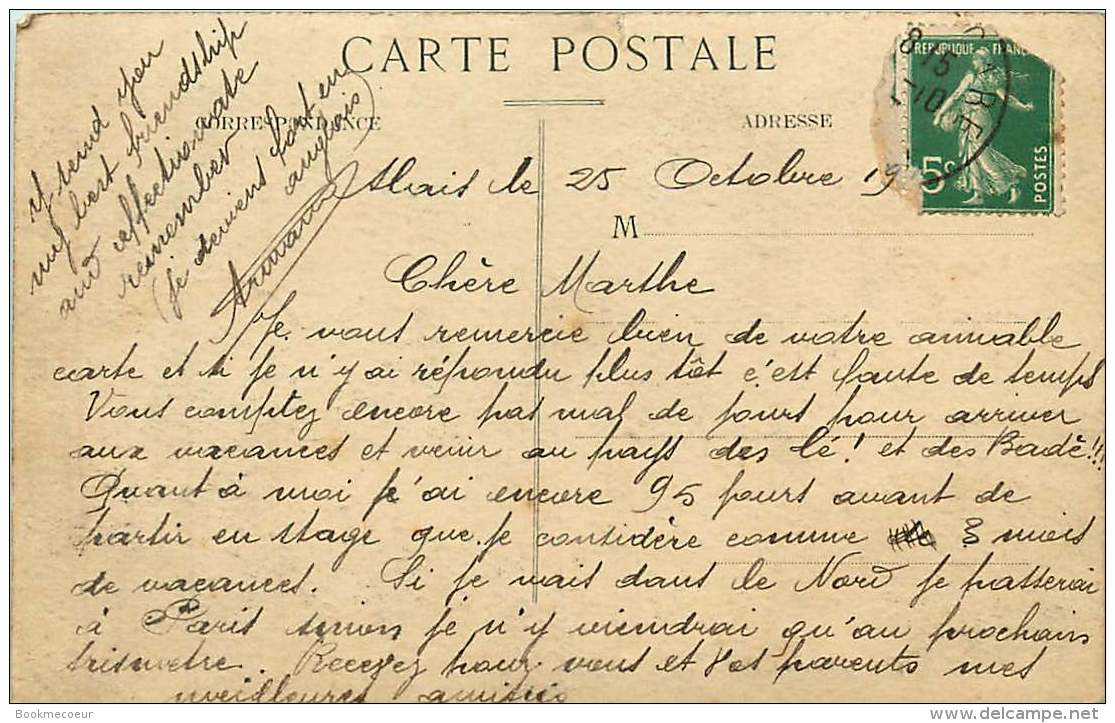 CARTE POSTALE
CORRESPONDANCE
ADRESSE
REPUBLIQUE FRANC
5c
POSTES
15
10
M
I send you
my best friendship
and affectionate
remember
(je deviens fort en
anglais)
Armand
Alais le 25 Octobre 19
Chère Marthe
Je vous remercie bien de votre aimable
carte et si je n'y ai répondu plus tôt c'est faute de temps
Vous comptez encore pas mal de jours pour arriver
aux vacances et venir au pays des lé! et des Badè!!!
Quant à moi j'ai encore 95 jours avant de
partir en stage que je considère comme 3 mois
de vacances. Si je vais dans le Nord je passerai
à Paris sinon je n'y viendrai qu'au prochain
trismetre. Recevez pour vous et vos parents mes
meilleures amitiés
Bookmecoeur
www.delcampe.net